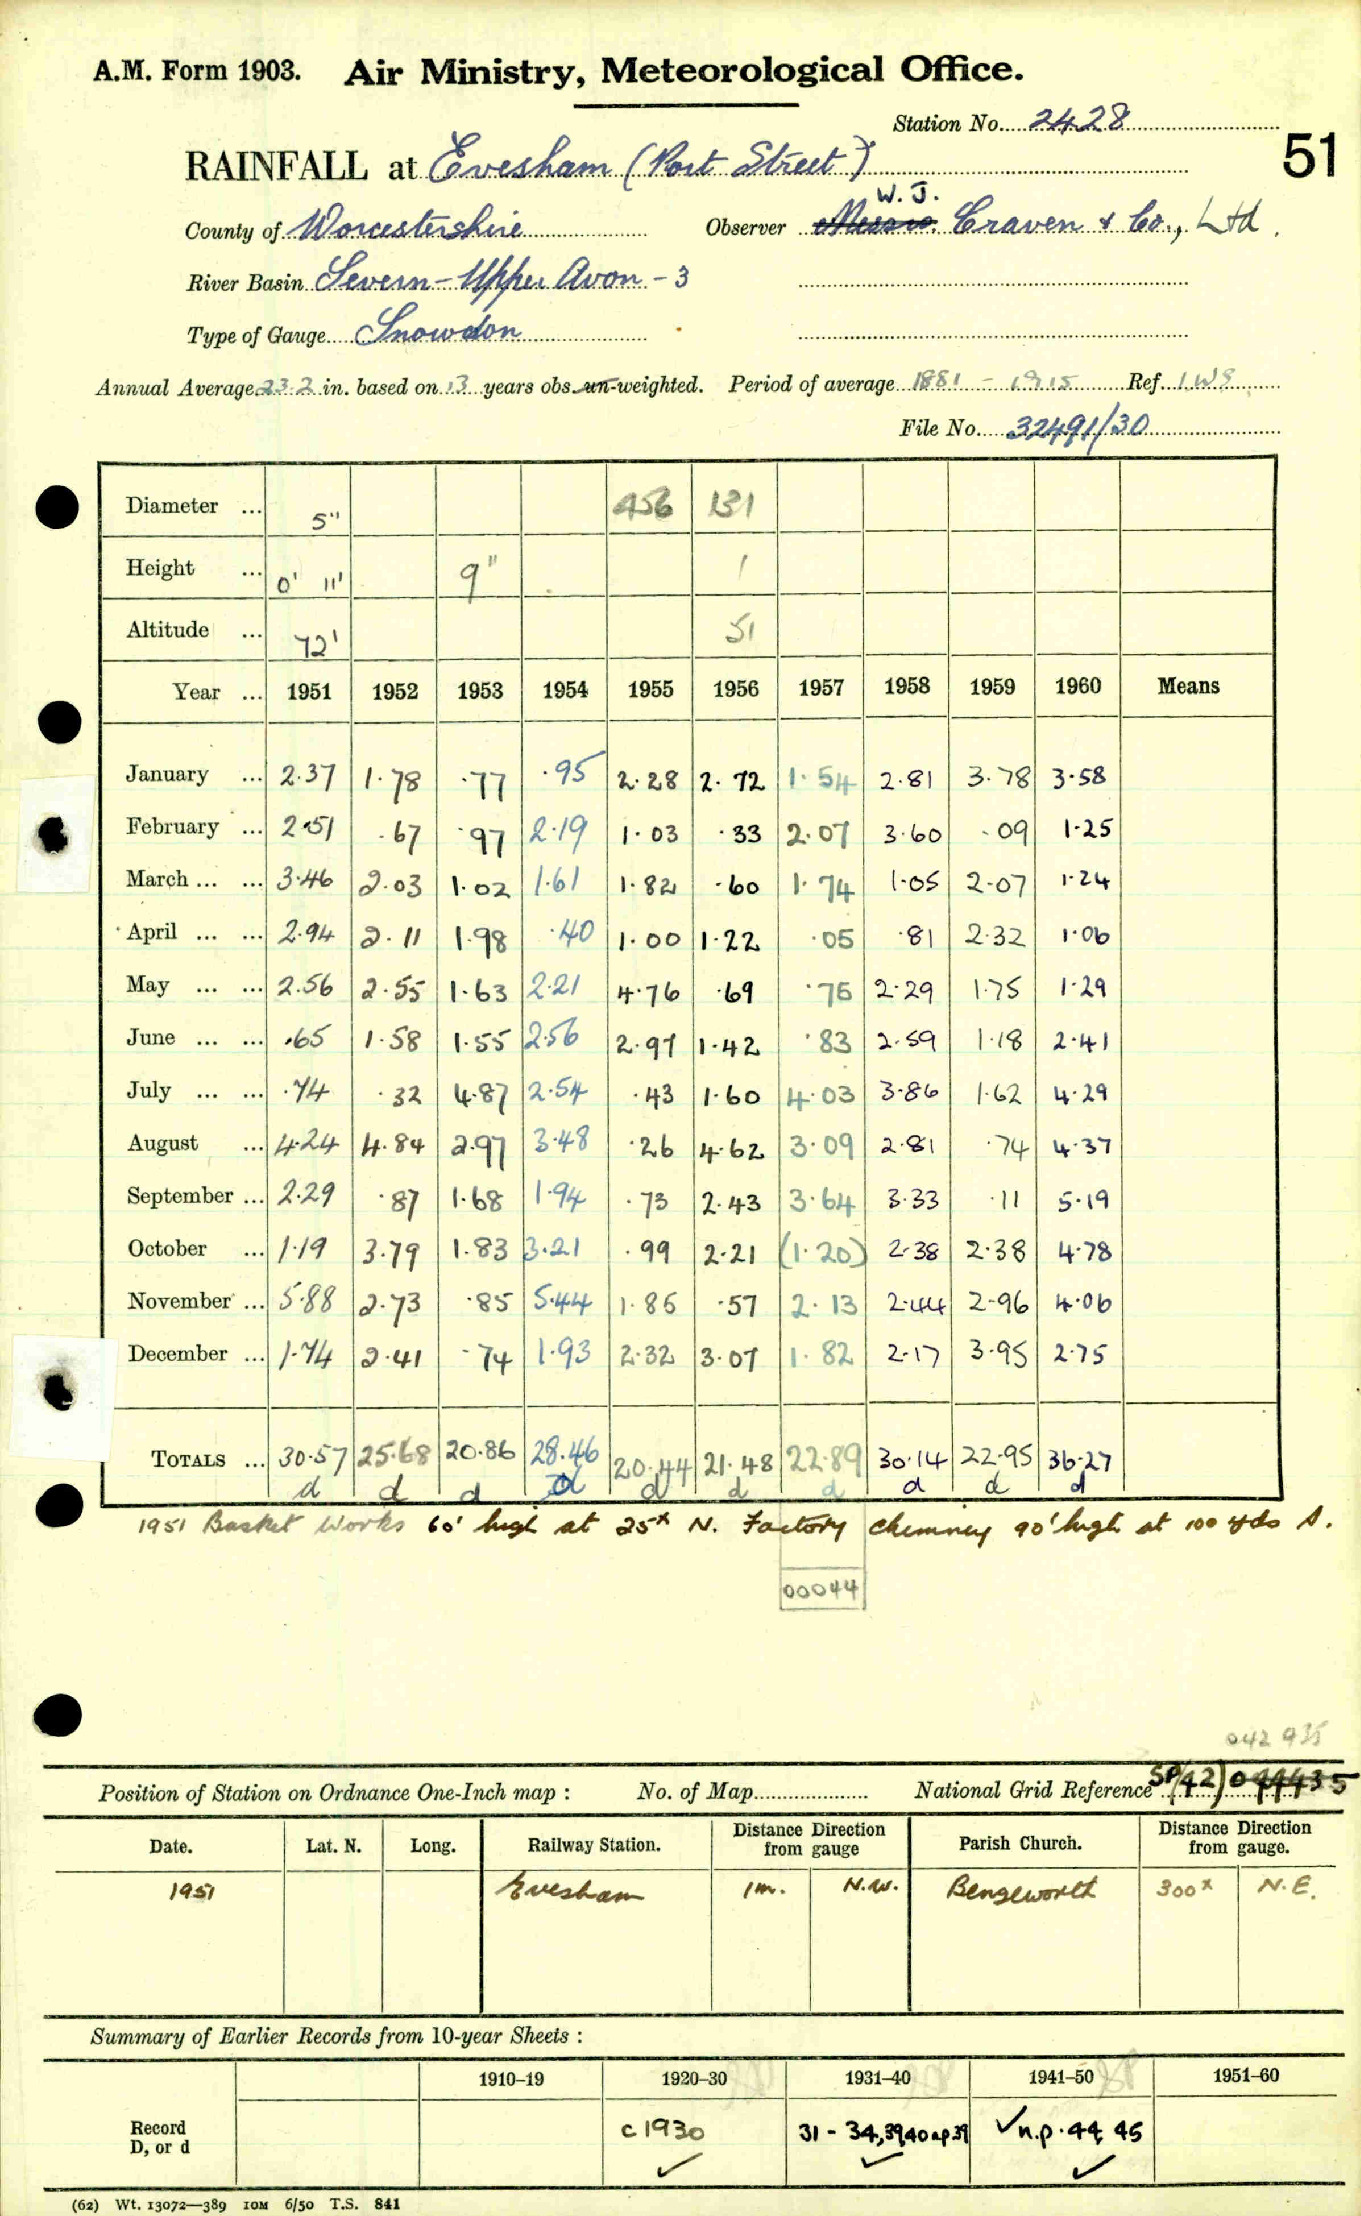 A.M. Form 1903. Air Ministry, Meteorological Office.
Station No. 2428
51
RAINFALL at Evesham (Port Street)
W. J.
County of Worcestershire Observer Messrs. Craven & Co., Ltd.
River Basin Severn - Upper Avon - 3
Type of Gauge Snowdon
Annual Average 23.2 in. based on 13 years obs. un-weighted. Period of average 1881 - 1915 Ref.
File No. 32491/30
Diameter ... 5" 456 131
Height ... 0' 11" 9" 1
Altitude ... 72' 51
Year ... 1951 1952 1953 1954 1955 1956 1957 1958 1959 1960 Means
January ... 2.37 1.78 .77 .95 2.28 2.72 1.54 2.81 3.78 3.58
February ... 2.51 .67 .97 2.19 1.03 .33 2.07 3.60 .09 1.25
March ... ... 3.46 2.03 1.02 1.61 1.82 .60 1.74 1.05 2.07 1.24
April ... ... 2.94 2.11 1.98 .40 1.00 1.22 .05 .81 2.32 1.06
May ... ... 2.56 2.55 1.63 2.21 4.76 .69 .75 2.29 1.75 1.29
June ... ... .65 1.58 1.55 2.56 2.97 1.42 .83 2.59 1.18 2.41
July ... ... .74 .32 4.87 2.54 .43 1.60 4.03 3.86 1.62 4.29
August ... 4.24 4.84 2.97 3.48 .26 4.62 3.09 2.81 .74 4.37
September ... 2.29 .87 1.68 1.94 .73 2.43 3.64 3.33 .11 5.19
October ... 1.19 3.79 1.83 3.21 .99 2.21 (1.20) 2.38 2.38 4.78
November ... 5.88 2.73 .85 5.44 1.85 .57 2.13 2.44 2.96 4.06
December ... 1.74 2.41 .74 1.93 2.32 3.07 1.82 2.17 3.95 2.75
TOTALS ... 30.57 25.68 20.86 28.46 20.44 21.48 22.89 30.14 22.95 36.27
d d d d d d d d d d
1951 Basket Works 60' high at 25x N. Factory chimney 90' high at 100 yds S.
00044
042 935
Position of Station on Ordnance One-Inch map : No. of Map National Grid Reference SP(42)
Date. Lat. N. Long. Railway Station. Distance Direction from gauge Parish Church. Distance Direction from gauge.
1951 Evesham 1m. N.W. Bengeworth 300x N.E.
Summary of Earlier Records from 10-year Sheets :
1910–19 1920–30 1931–40 1941–50 1951–60
Record D, or d c1930 31 - 34,39,40 n.p 39 ✓n.p. 44, 45
✓ ✓ ✓
(62) Wt. 13072—389 10M 6/50 T.S. 841